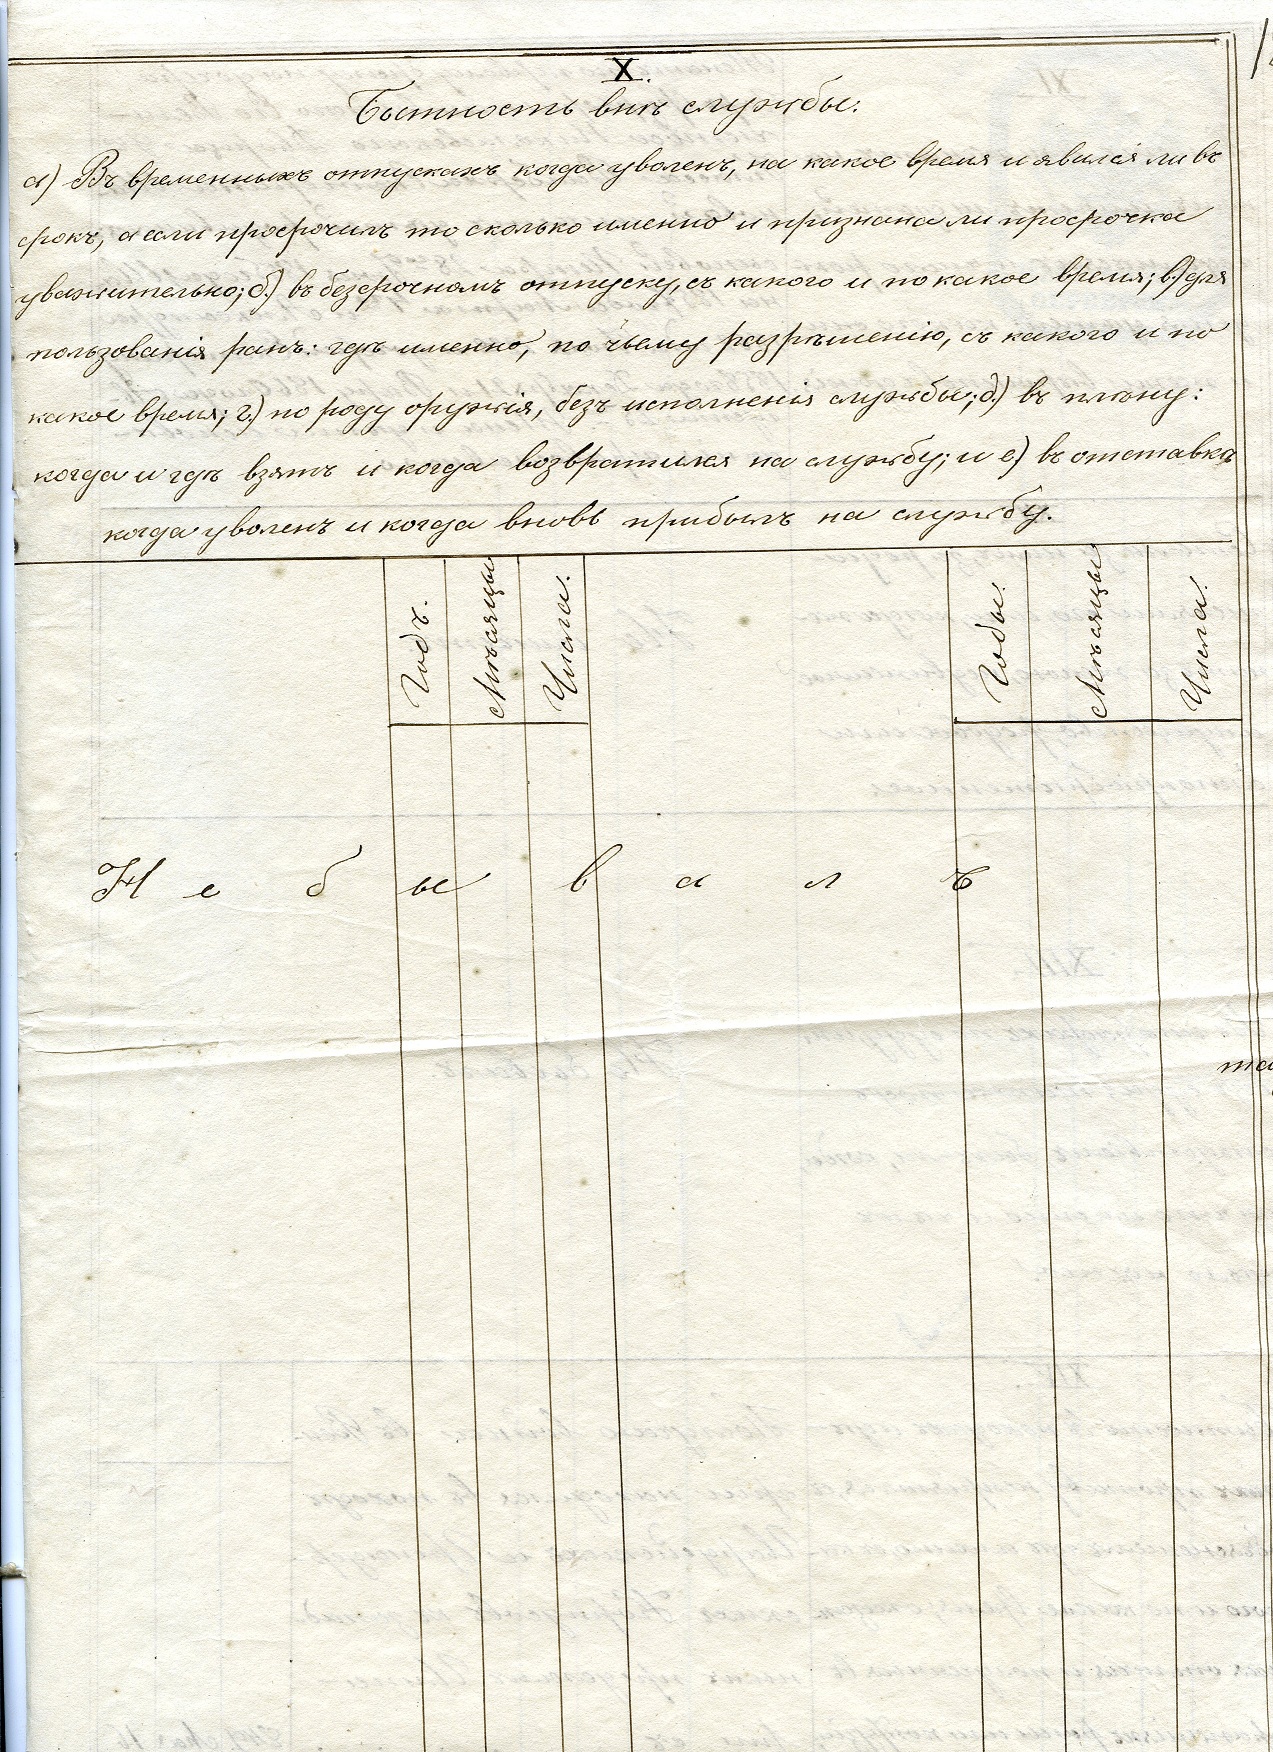 X.
Бытность внѣ службы:
а) Въ временныхъ отпускахъ когда уволенъ, на какое время и явился ли въ
срокъ, а если просрочилъ то сколько именно и признана ли просрочка
уважительно; б.) въ безсрочномъ отпуску, съ какого и по какое время; в.) для
пользованія ранъ: гдѣ именно, по чьему разрѣшенію, съ какого и по
какое время; г.) по роду оружія, безъ исполненія службы; д.) въ плѣну:
когда и гдѣ взятъ и когда возвратился на службу; и е.) въ отставкѣ
когда уволенъ и когда вновь прибылъ на службу.
Годъ. Мѣсяцы Числа. Годы. Мѣсяцы Числа.
Не бывалъ